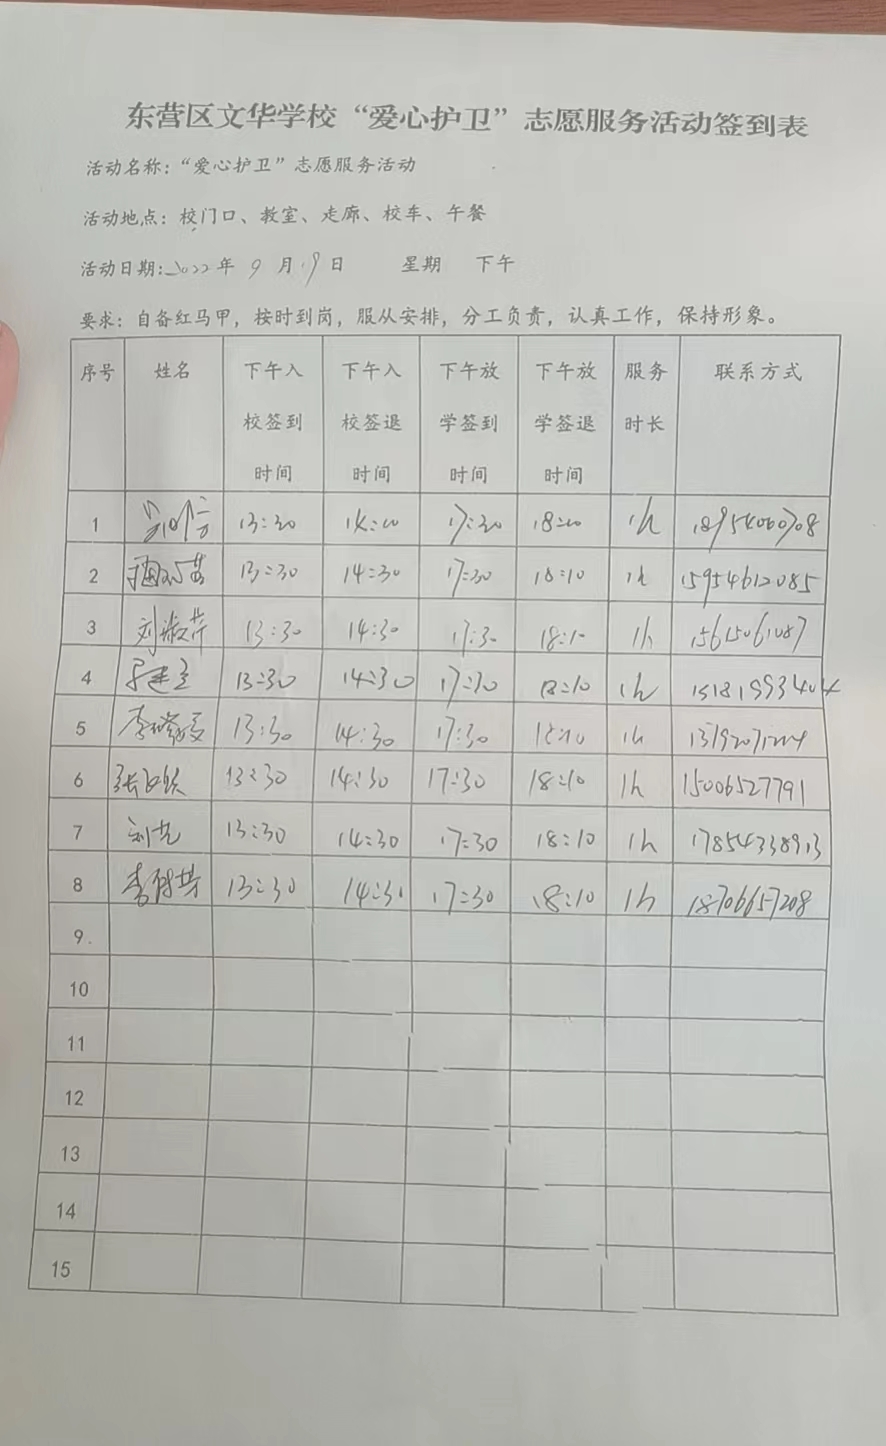 东营区文华学校“爱心护卫”志愿服务活动签到表
活动名称：“爱心护卫”志愿服务活动
活动地点：校门口、教室、走廊、校车、午餐
活动日期：2022年 9 月 19 日 星期 下午
要求：自备红马甲，按时到岗，服从安排，分工负责，认真工作，保持形象。
序号 姓名 下午入校签到时间 下午入校签退时间 下午放学签到时间 下午放学签退时间 服务时长 联系方式
1 13:30 17:30 1h
2 13:30 14:30 17:30 18:10 1h 15954612085
3 刘淑芹 13:30 14:30 17:30 18:10 1h 15615061087
4 13:30 14:30 17:30 18:10 1h
5 13:30 14:30 17:30 18:10 1h
6 13:30 14:30 17:30 18:10 1h 15006527791
7 13:30 14:30 17:30 18:10 1h 17854338913
8 13:30 17:30 18:10 1h 18706657208
9
10
11
12
13
14
15